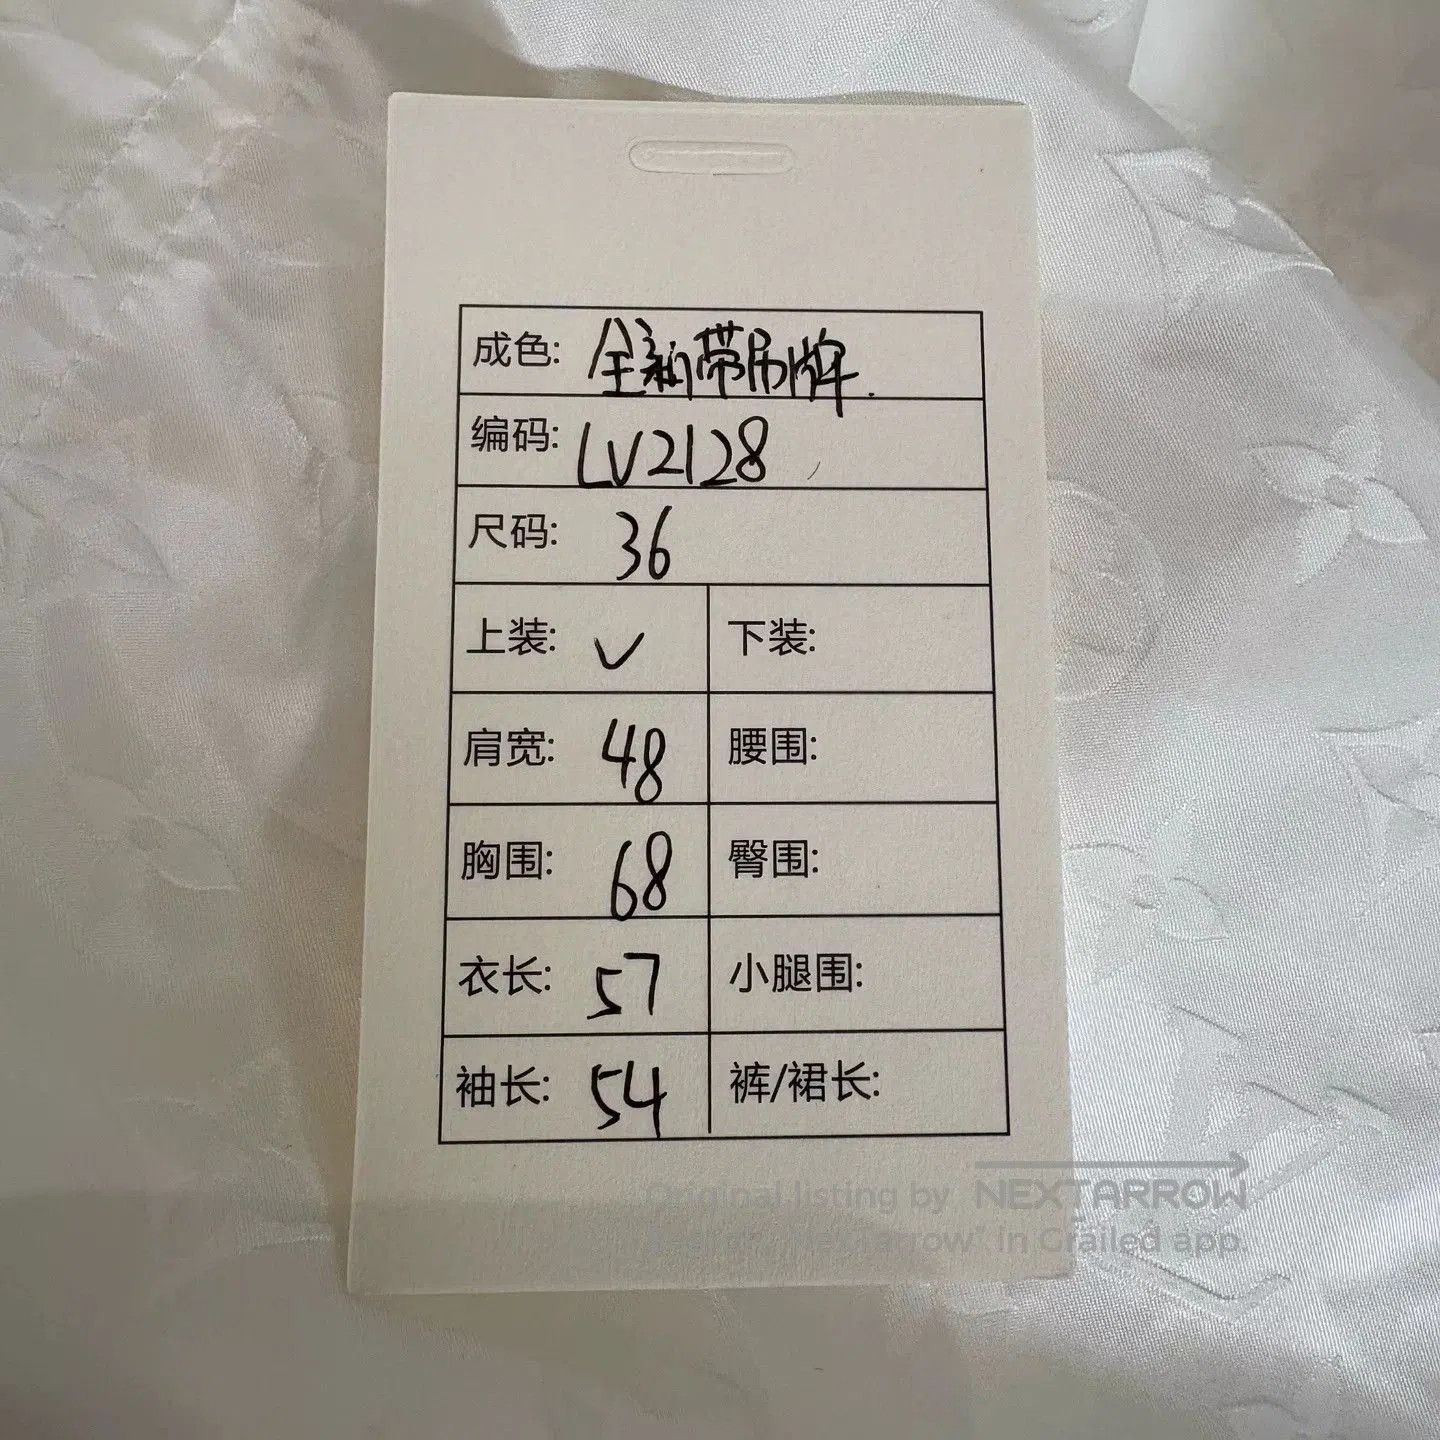 成色: 全新带吊牌.
编码: LV2128
尺码: 36
上装: ✓ 下装:
肩宽: 48 腰围:
胸围: 68 臀围:
衣长: 57 小腿围:
袖长: 54 裤/裙长:
Original listing by NEXTARROW
"NexTarrow" in Grailed app.